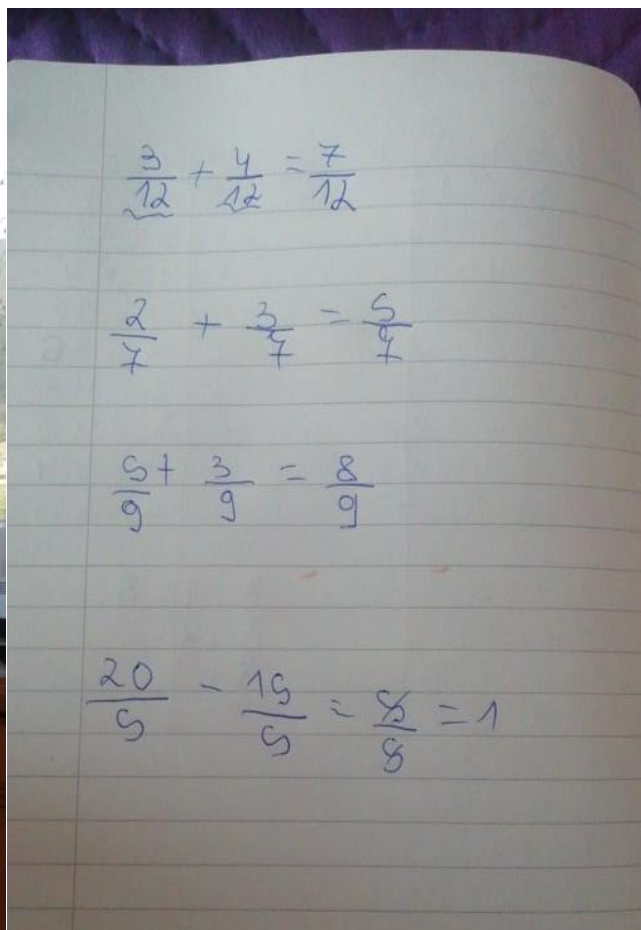 3/12 + 4/12 = 7/12
2/7 + 3/7 = 5/7
5/9 + 3/9 = 8/9
20/5 - 15/5 = 5/5 = 1